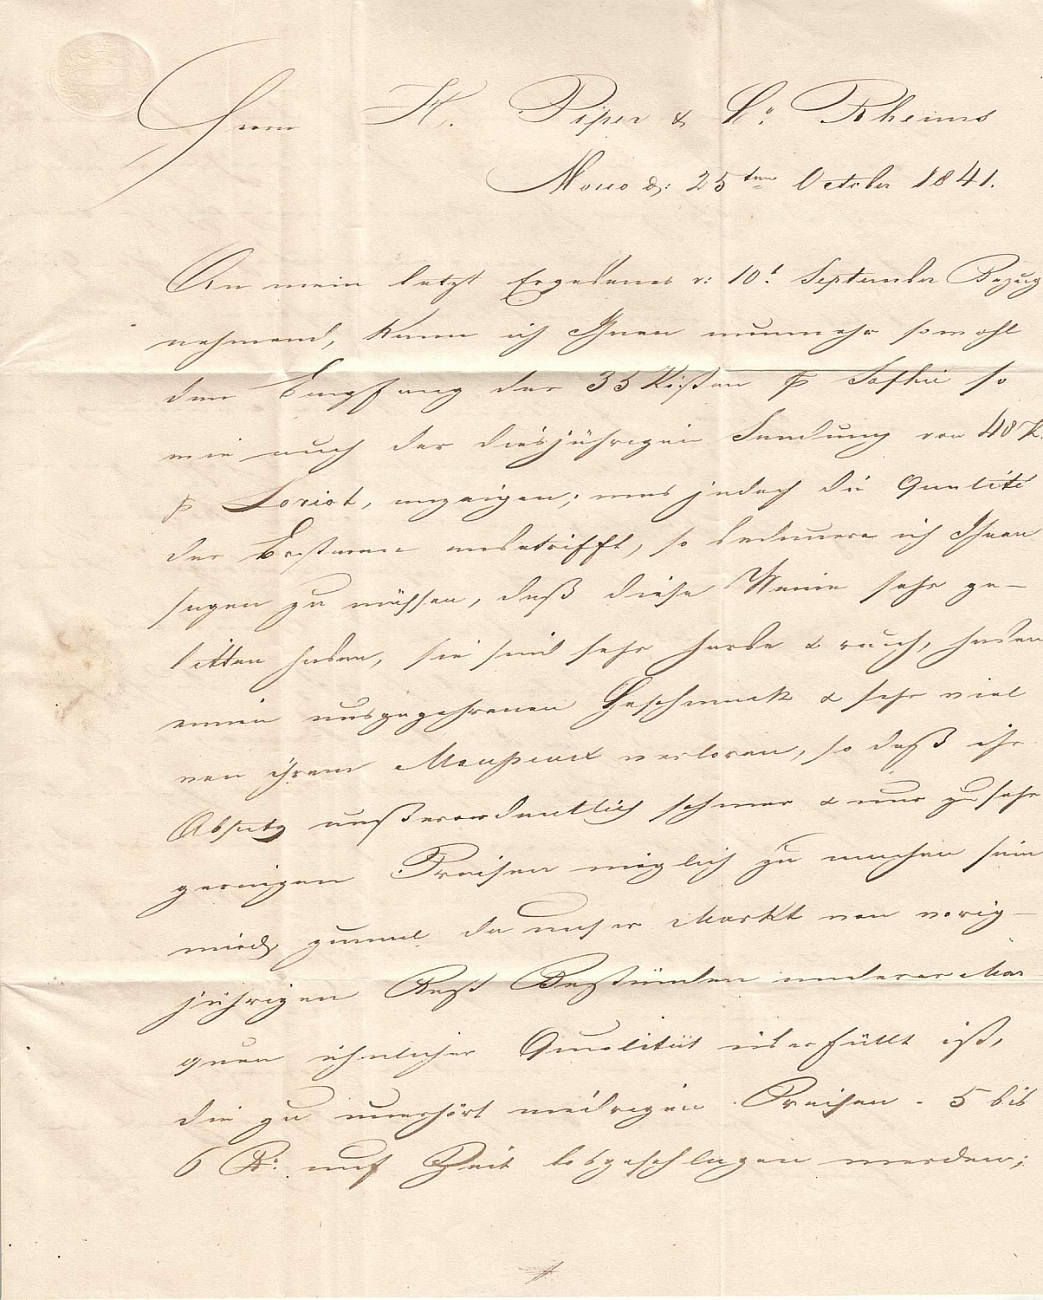 Herrn H. Piper & Co. Rheims
Moscou d: 25ten October 1841.
An mein letzt Ergebenes v: 10t. September Bezug
nehmend, kann ich Ihnen nunmehr sowohl
den Empfang der 35 Kisten p Sophie so
wie auch der diesjährigen Sendung von 40 K.
p Loriot, anzeigen; was jedoch die Qualité
der Ersteren anbetrifft, so bedauere ich Ihnen
sagen zu müssen, daß diese Weine sehr ge-
litten haben, sie sind sehr herbe & rauh, haben
einen ausgegohrenen Geschmack & sehr viel
von ihrem Mousseux verloren, so daß ihr
Absatz außerordentlich schwer & nur zu sehr
geringen Preisen möglich zu machen sein
wird, zumal da unser Markt von vorig-
jährigen Rest Beständen anderer Mar-
quen ähnlicher Qualität überfüllt ist,
die zu unerhört niedrigen Preisen - 5 bis
6 R: auf Zeit losgeschlagen werden;